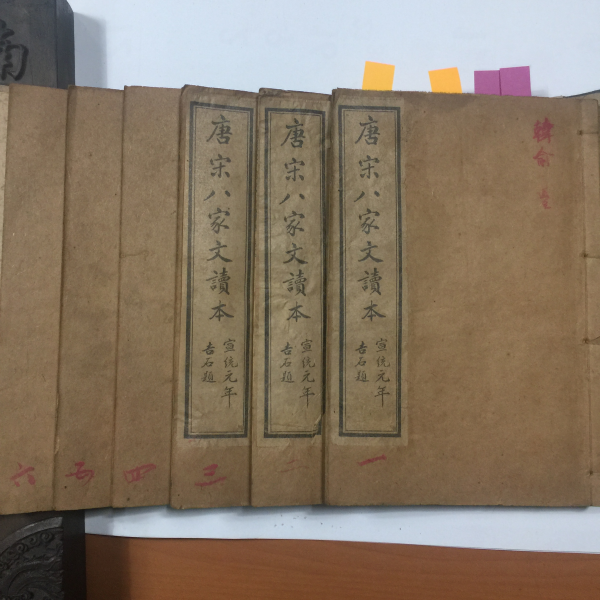 韓愈
唐宋八家文讀本
宣統元年
古石題
一
唐宋八家文讀本
宣統元年
古石題
二
唐宋八家文讀本
宣統元年
古石題
三
四
五
六